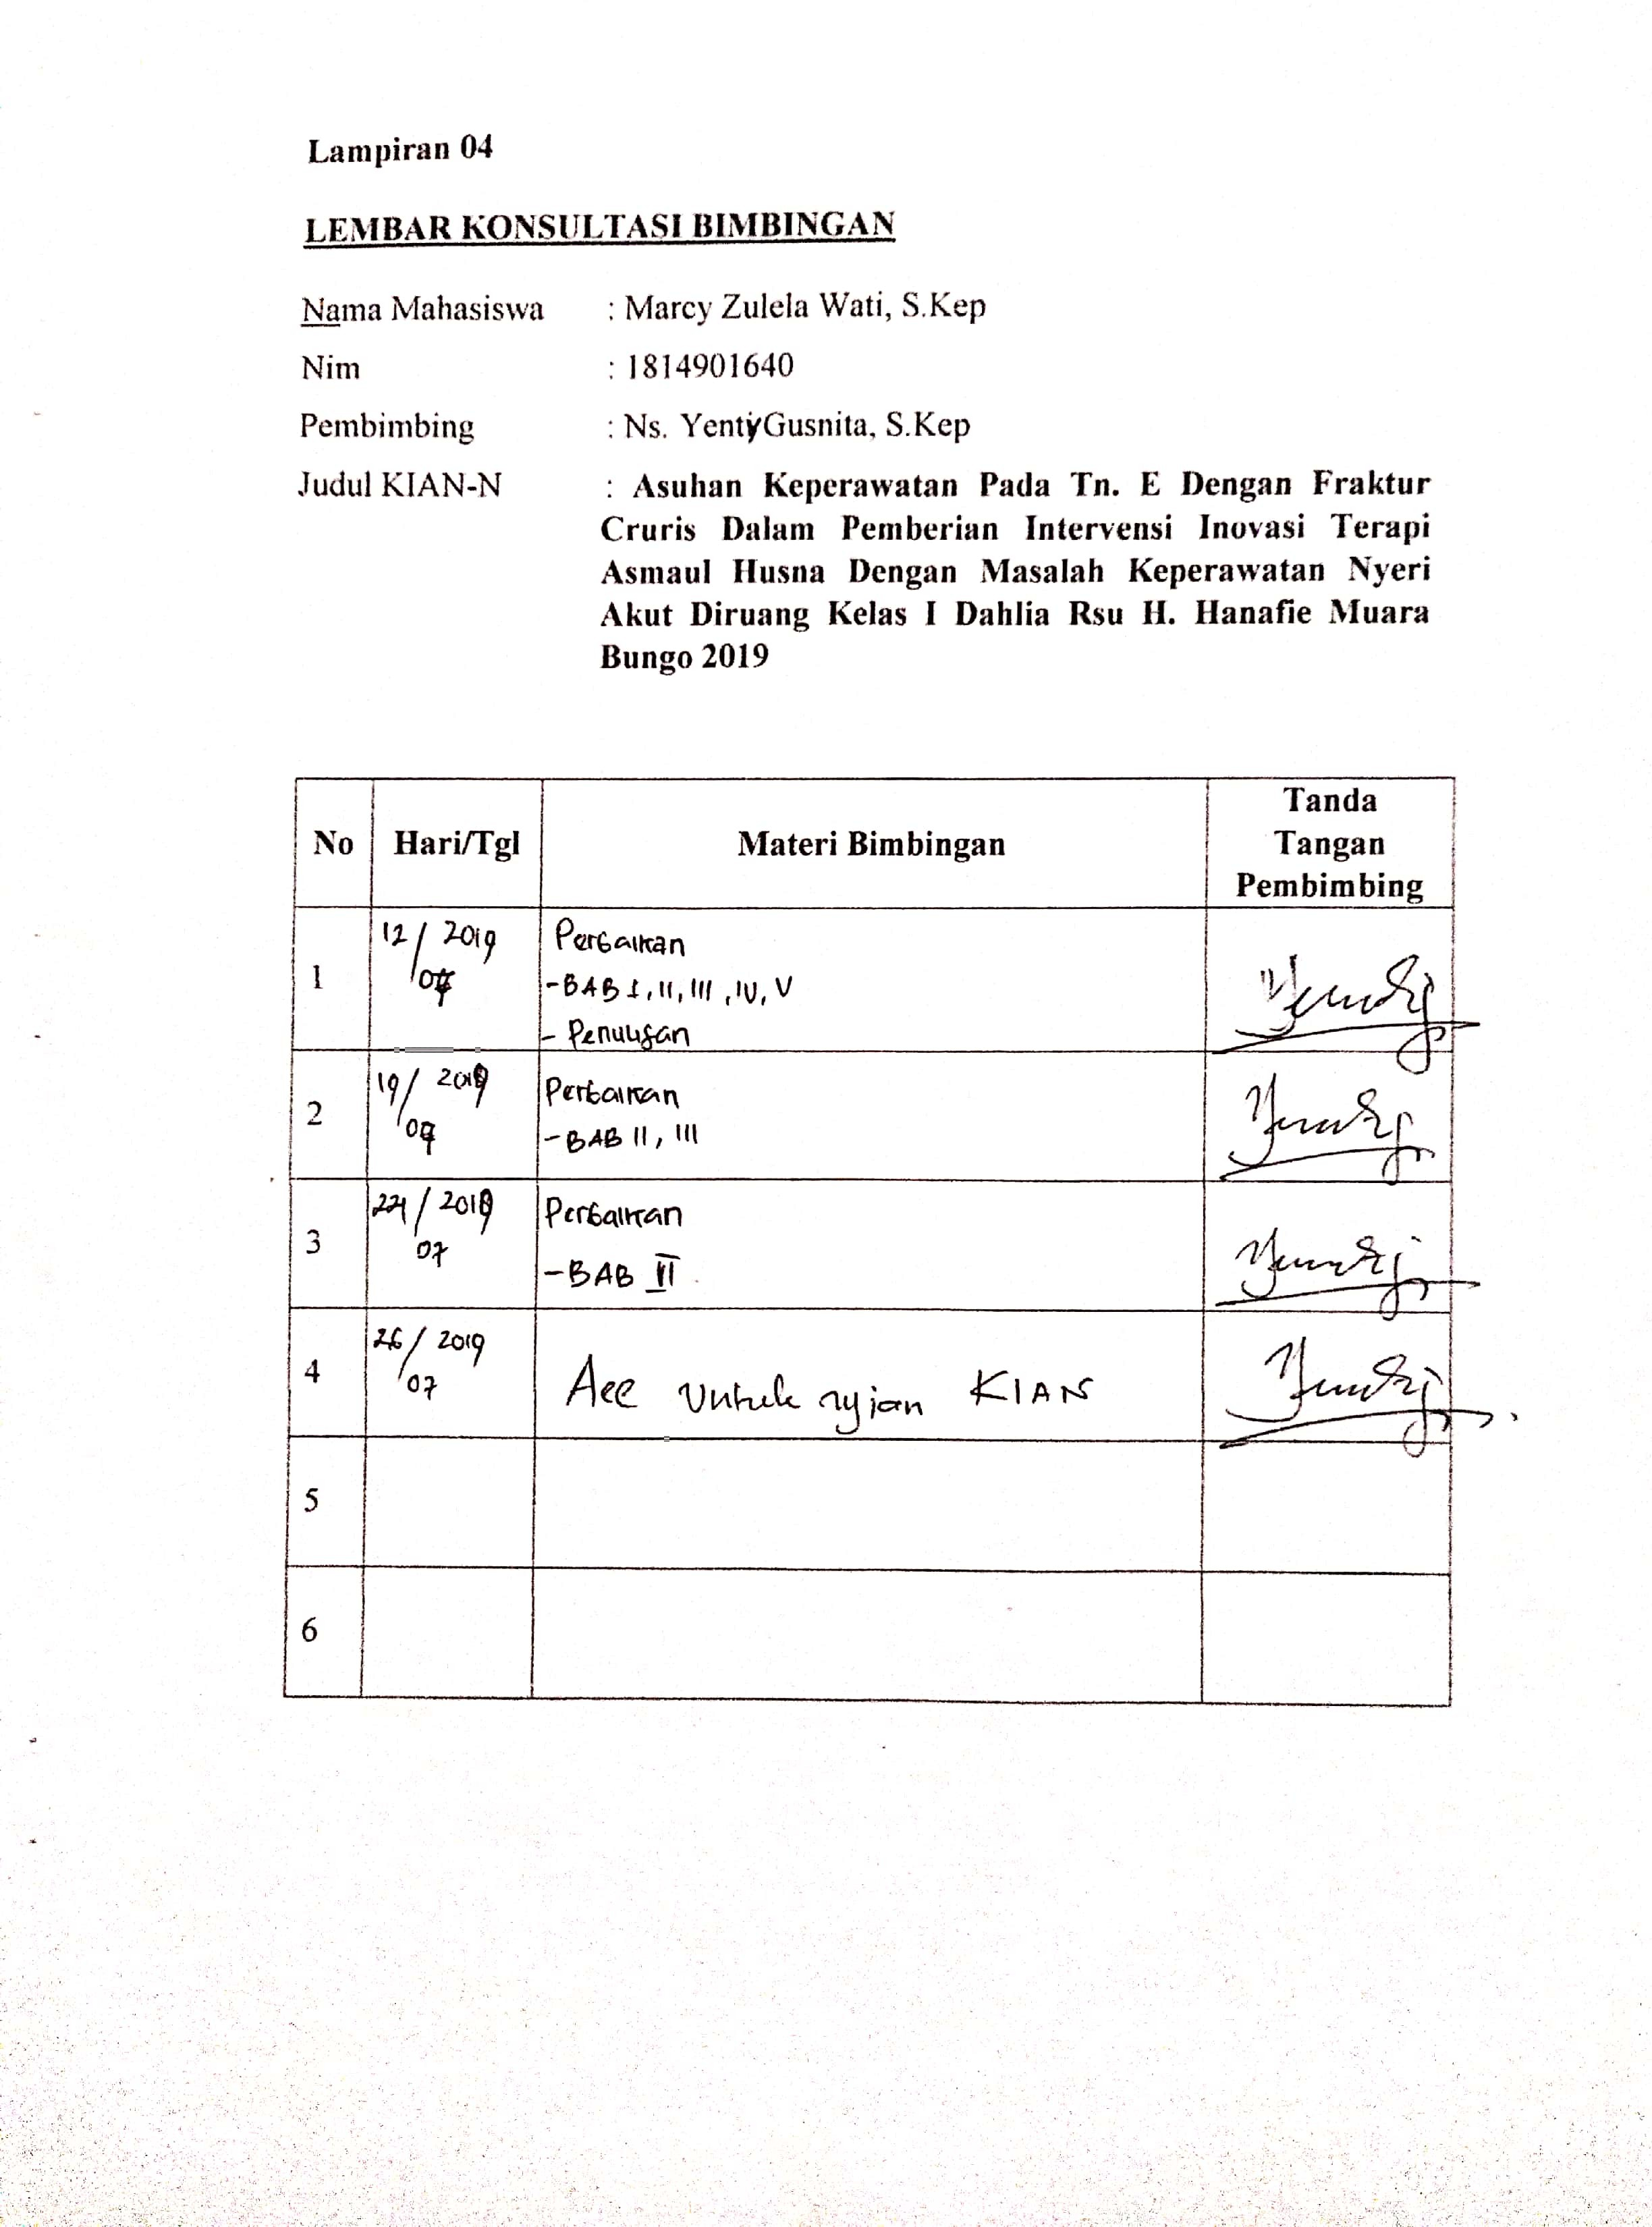 Lampiran 04
LEMBAR KONSULTASI BIMBINGAN
Nama Mahasiswa : Marcy Zulela Wati, S.Kep
Nim : 1814901640
Pembimbing : Ns. Yenty Gusnita, S.Kep
Judul KIAN-N : Asuhan Keperawatan Pada Tn. E Dengan Fraktur
Cruris Dalam Pemberian Intervensi Inovasi Terapi
Asmaul Husna Dengan Masalah Keperawatan Nyeri
Akut Diruang Kelas I Dahlia Rsu H. Hanafie Muara
Bungo 2019
No Hari/Tgl Materi Bimbingan Tanda
Tangan
Pembimbing
1 12/ 2019 Perbaikan
-BAB I, II, III, IV, V
- Penulisan
2 19/ 2019 Perbaikan
-BAB II, III
3 / 2019 Perbaikan
07
-BAB II
4 26/ 2019
07 Acc untuk ujian KIAN
5
6